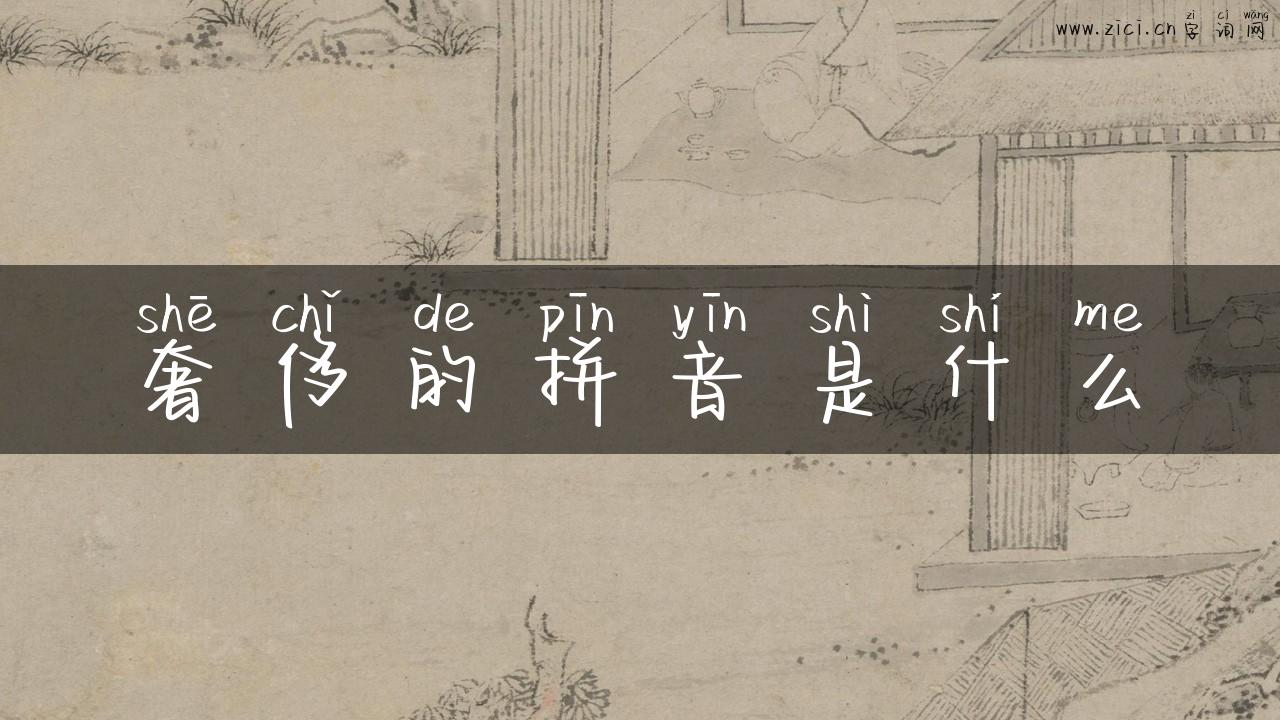 zì cí wǎng
www.zici.cn 字 词 网
shē chǐ de pīn yīn shì shí me
奢 侈 的 拼 音 是 什 么